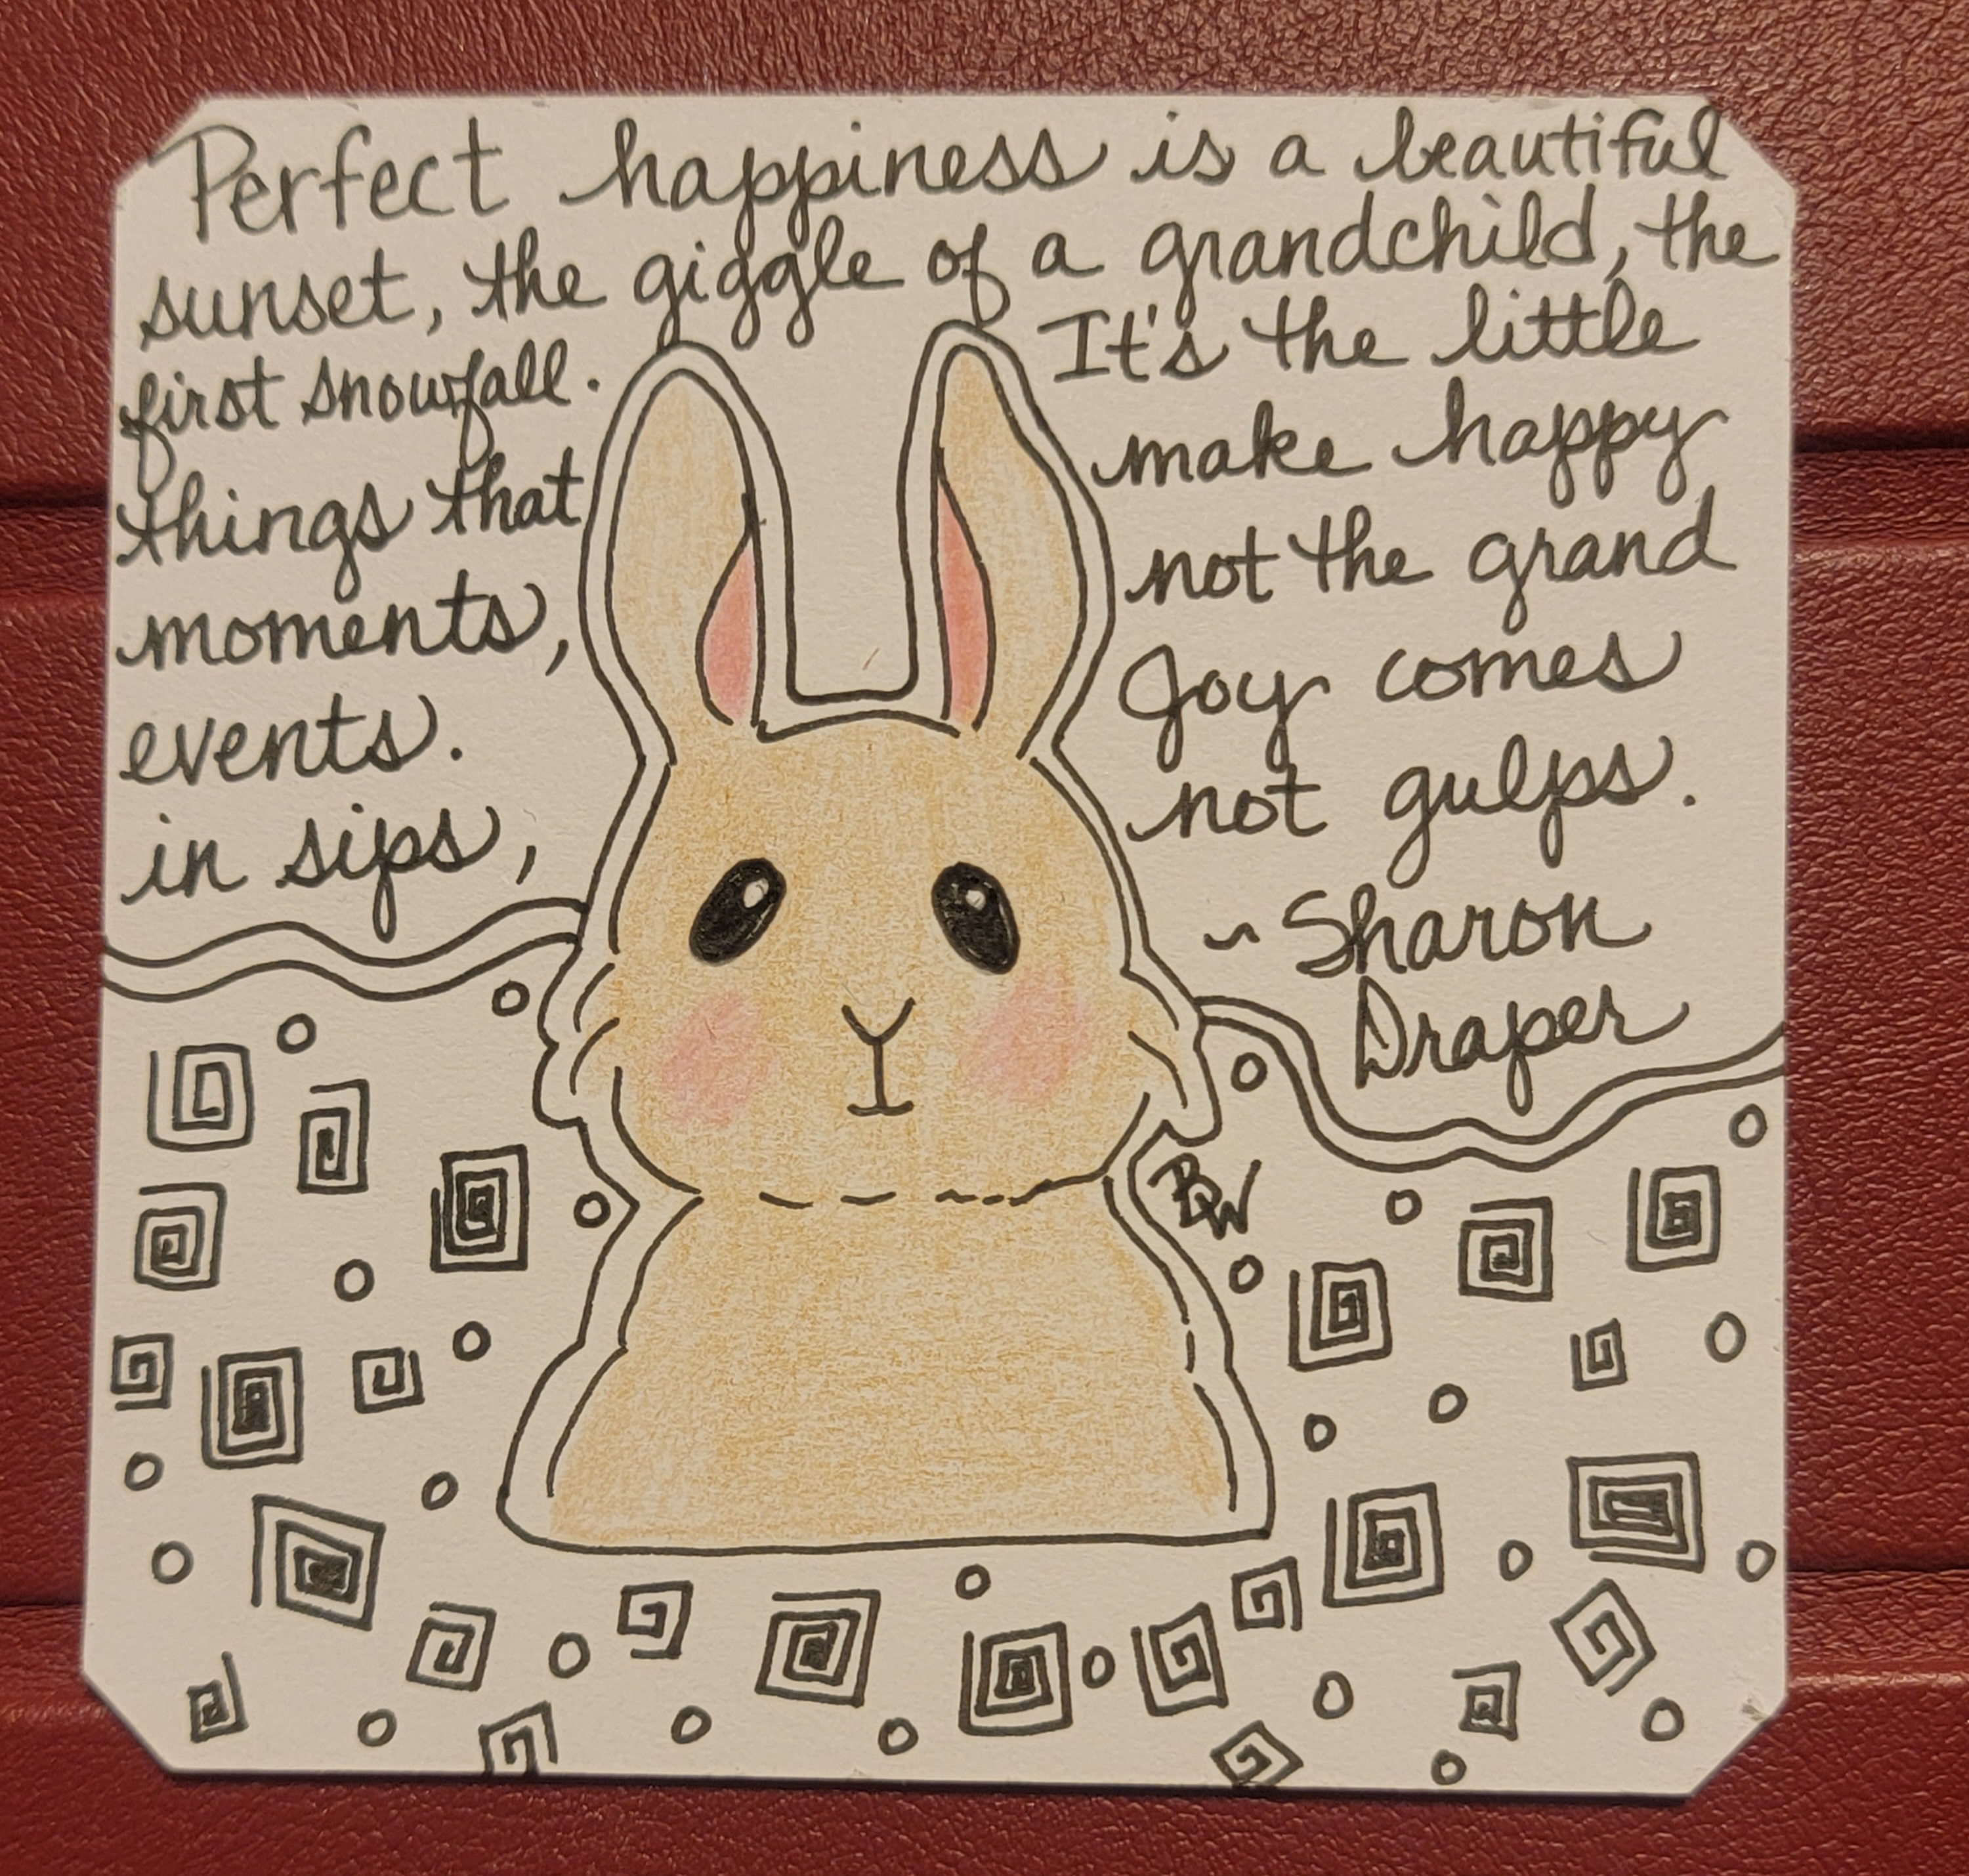 Perfect happiness is a beautiful
sunset, the giggle of a grandchild, the
first snowfall. It's the little
things that make happy
moments, not the grand
events. Joy comes
in sips, not gulps.
~ Sharon
Draper
BW